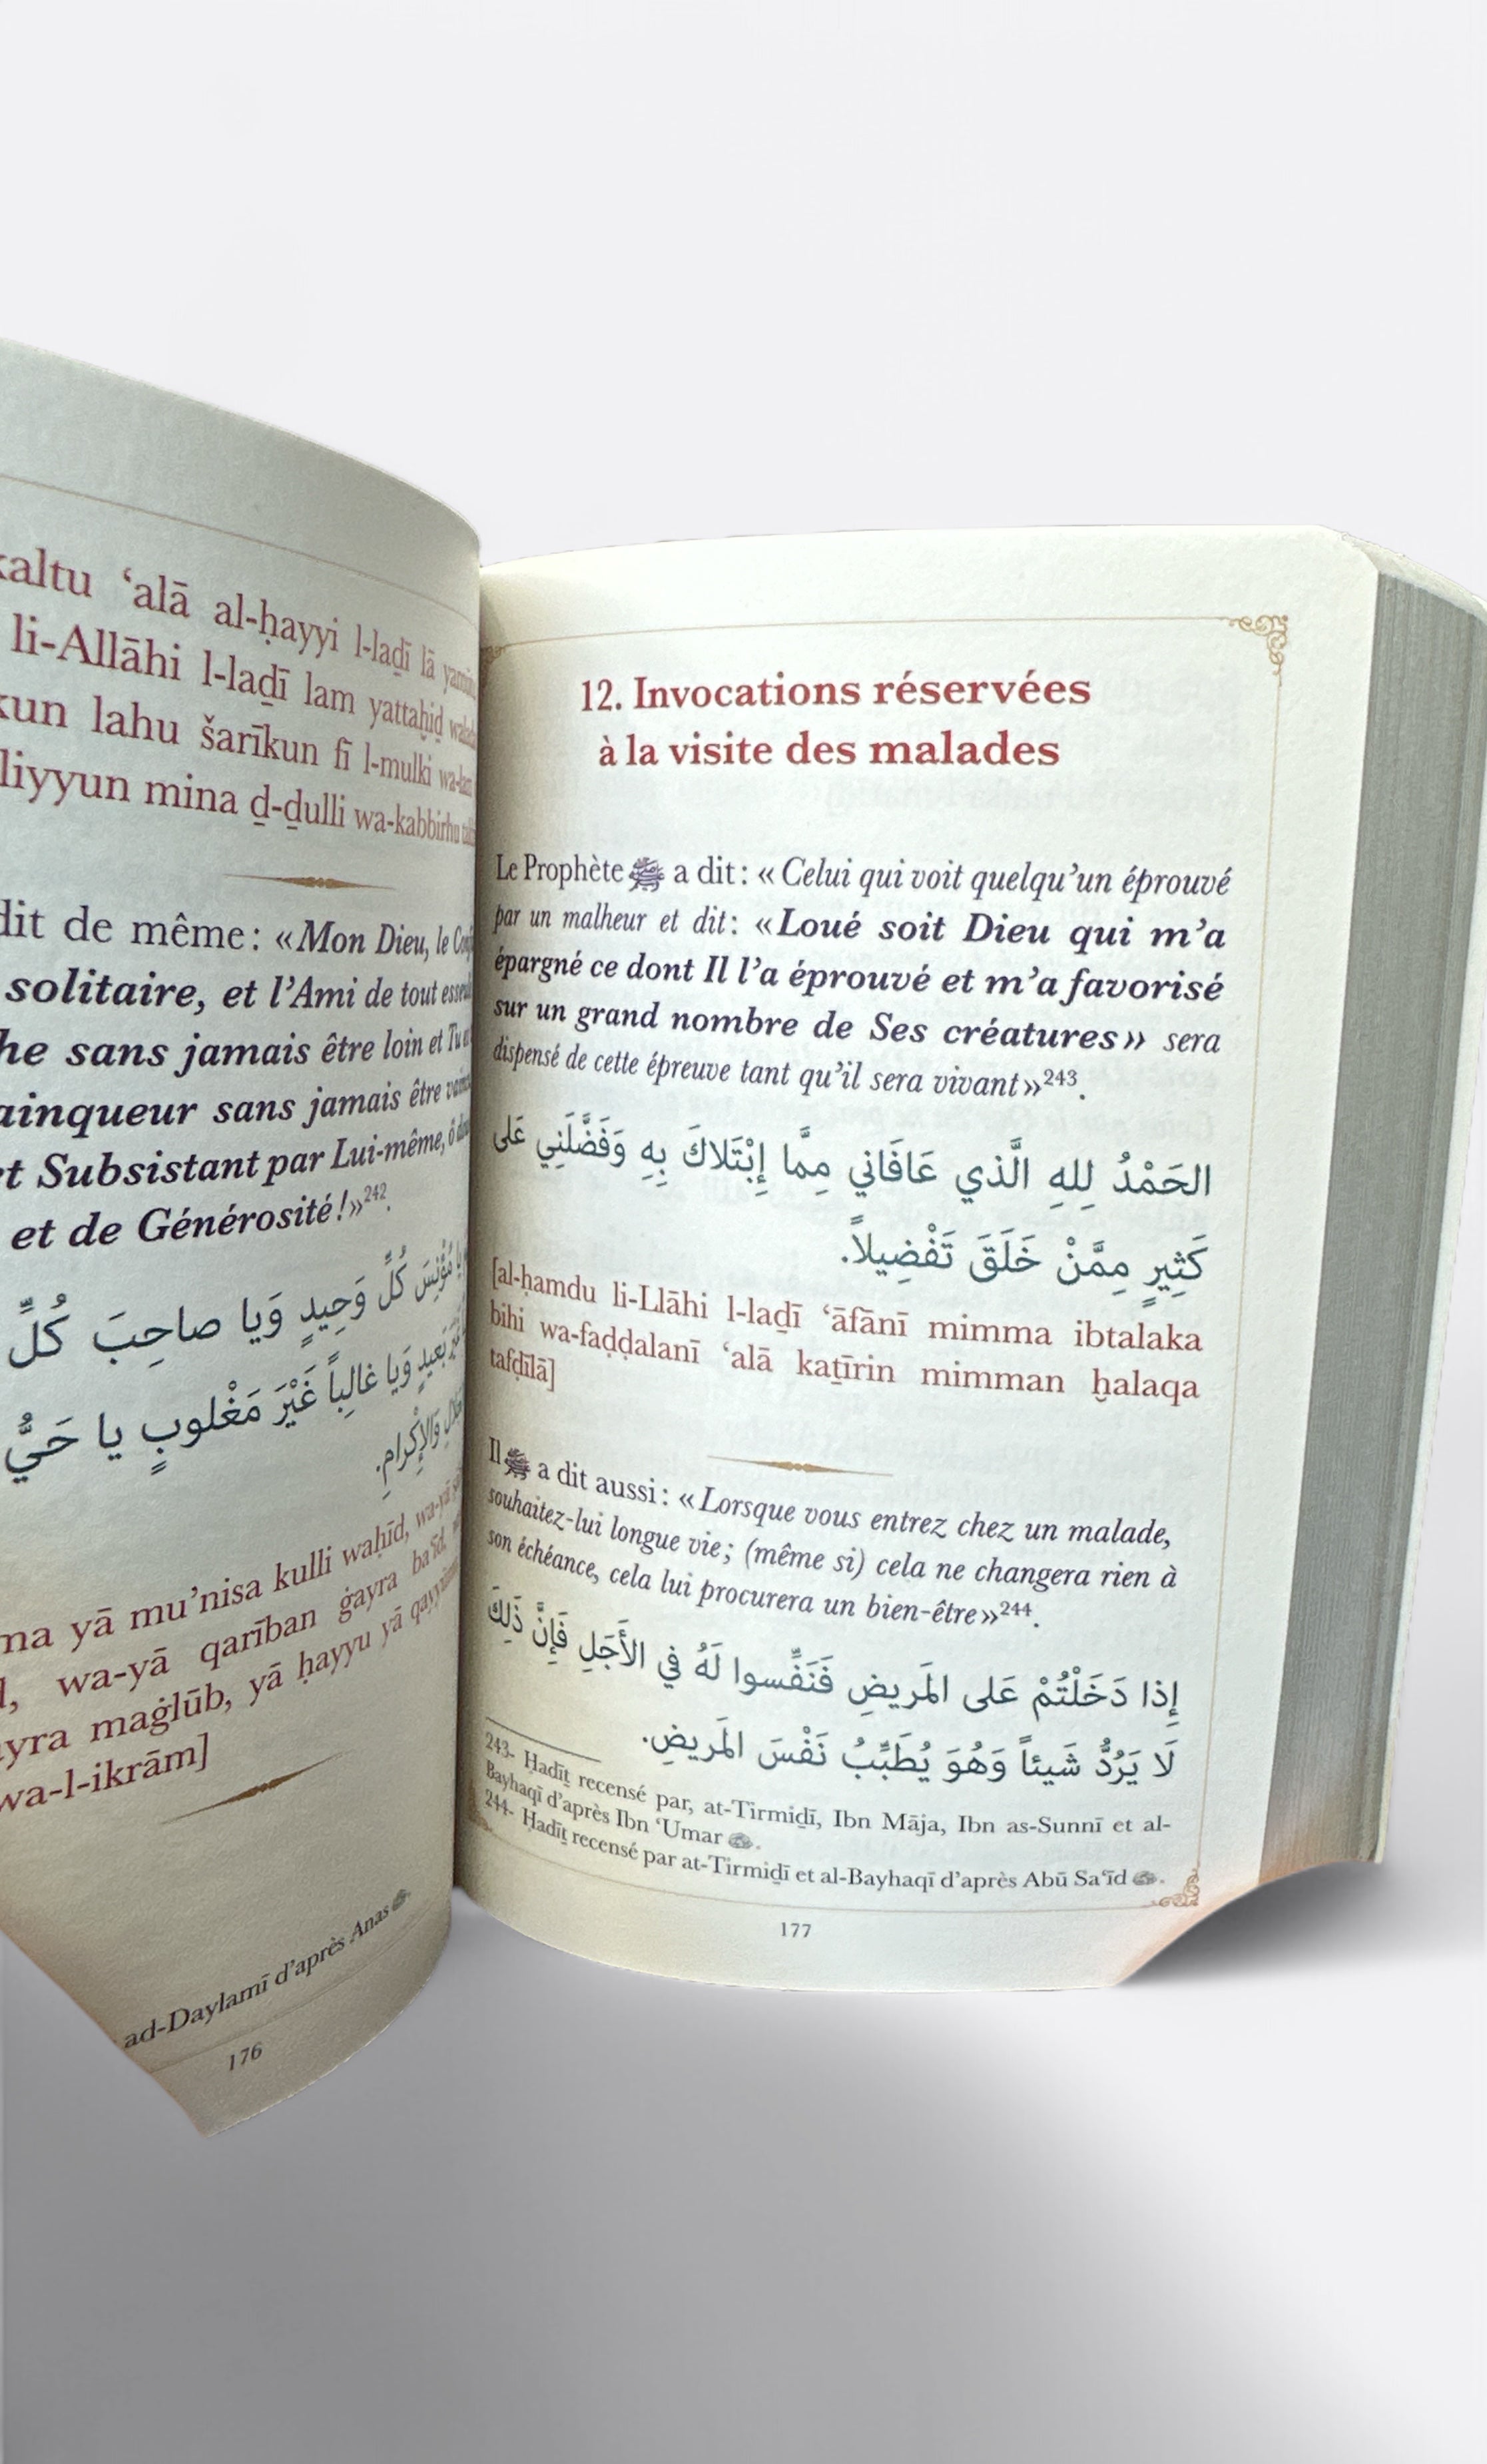 kaltu ‘alā al-ḥayyi l-laḏī lā
li-Allāhi l-laḏī lam yattaḫiḏ
kun lahu šarīkun fī l-mulki wa-lam
liyyun mina ḏ-ḏulli wa-kabbirhu
dit de même : «Mon Dieu, le
solitaire, et l’Ami de tout
he sans jamais être loin et Tu
ainqueur sans jamais être
et Subsistant par Lui-même, ô
et de Générosité !»242.
يا مُؤْنِسَ كُلِّ وَحِيدٍ وَيا صاحِبَ كُلِّ
بَعِيدٍ وَيا غالِباً غَيْرَ مَغْلوبٍ يا حَيُّ
وَالإِكْرامِ.
ma yā mu’nisa kulli waḥīd, wa-yā
d, wa-yā qarīban ġayra ba‘īd,
ayra maġlūb, yā ḥayyu yā
wa-l-ikrām]
ad-Daylamī d’après Anas
176
12. Invocations réservées
à la visite des malades
Le Prophète ﷺ a dit : « Celui qui voit quelqu’un éprouvé
par un malheur et dit : «Loué soit Dieu qui m’a
épargné ce dont Il l’a éprouvé et m’a favorisé
sur un grand nombre de Ses créatures» sera
dispensé de cette épreuve tant qu’il sera vivant»243.
الحَمْدُ لِلهِ الَّذي عَافَاني مِمَّا إِبْتَلاكَ بِهِ وَفَضَّلَنِي عَلى
كَثِيرٍ مِمَّنْ خَلَقَ تَفْضِيلاً.
[al-ḥamdu li-Llāhi l-laḏī ‘āfānī mimma ibtalaka
bihi wa-faḍḍalanī ‘alā kaṯīrin mimman ḫalaqa
tafḍīlā]
Il ﷺ a dit aussi : « Lorsque vous entrez chez un malade,
souhaitez-lui longue vie ; (même si) cela ne changera rien à
son échéance, cela lui procurera un bien-être»244.
إِذا دَخَلْتُمْ عَلى المَريضِ فَنَفِّسوا لَهُ في الأَجَلِ فَإِنَّ ذَلِكَ
لَا يَرُدُّ شَيئاً وَهُوَ يُطَبِّبُ نَفْسَ المَريضِ.
243- Ḥadīṯ recensé par, at-Tirmiḏī, Ibn Māja, Ibn as-Sunnī et al-
Bayhaqī d’après Ibn ‘Umar
244- Ḥadīṯ recensé par at-Tirmiḏī et al-Bayhaqī d’après Abū Sa‘īd
177